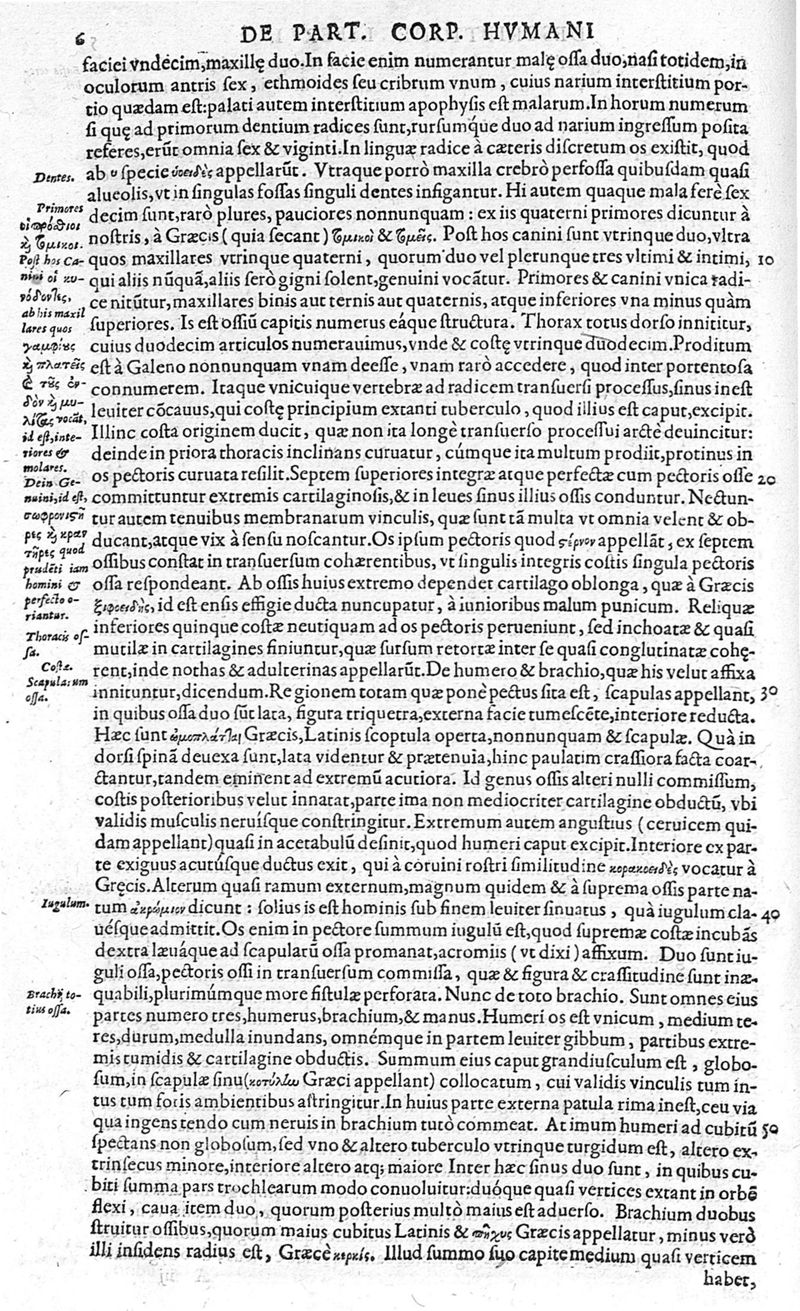 6
DE PART. CORP. HVMANI
faciei vndecim, maxillę duo. In facie enim numerantur malę ossa duo, nasi totidem, in
oculorum antris sex, ethmoides seu cribrum vnum, cuius narium interstitium por-
tio quædam est: palati autem interstitium apophysis est malarum. In horum numerum
si quę ad primorum dentium radices sunt, rursumq́ue duo ad narium ingressum posita
referes, erũt omnia sex & viginti. In linguæ radice à cæteris discretum os existit, quod
Dentes.
ab υ specie ὑοειδὲς appellarũt. Vtraque porrò maxilla crebrò perfossa quibusdam quasi
alueolis, vt in singulas fossas singuli dentes infigantur. Hi autem quaque mala ferè sex
Primores
decim sunt, rarò plures, pauciores nonnunquam: ex iis quaterni primores dicuntur à
οἱ πρόσθιοι
καὶ τομικοι.
nostris, à Græcis (quia secant) τομικοὶ & τομεῖς. Post hos canini sunt vtrinque duo, vltra
Post hos Ca-
quos maxillares vtrinque quaterni, quorum duo vel plerunque tres vltimi & intimi, 10
nini οἱ κυ-
qui aliis nũquã, aliis serò gigni solent, genuini vocãtur. Primores & canini vnica radi-
νόδοντες,
ce nitũtur, maxillares binis aut ternis aut quaternis, atque inferiores vna minus quàm
ab his maxil
lares quos
superiores. Is est ossiũ capitis numerus eáque structura. Thorax totus dorso innititur,
γαμφίους
cuius duodecim articulos numerauimus, vnde & costę vtrinque duodecim. Proditum
καὶ πλατεῖς
est à Galeno nonnunquam vnam deesse, vnam rarò accedere, quod inter portentosa
& τοὺς ἔν-
connumerem. Itaque vnicuique vertebræ ad radicem transuersi processus, sinus inest
δον καὶ μυ-
leuiter cõcauus, qui costę principium extanti tuberculo, quod illius est caput, excipit.
λίτας vocãt,
id est, inte-
Illinc costa originem ducit, quæ non ita longè transuerso processui arctè deuincitur:
riores &
deinde in priora thoracis inclinans curuatur, cúmque ita multum prodiit, protinus in
molares.
Dein Ge-
os pectoris curuata resilit. Septem superiores integræ atque perfectæ cum pectoris osse 20
nuini, id est,
committuntur extremis cartilaginosis, & in leues sinus illius ossis conduntur. Nectun-
σωφρονιστῆ
tur autem tenuibus membranarum vinculis, quæ sunt tã multa vt omnia velent & ob-
ρες καὶ κραν
ducant, atque vix à sensu noscantur. Os ipsum pectoris quod στέρνον appellãt, ex septem
τῆρες quod
prudẽti iam
ossibus constat in transuersum cohærentibus, vt singulis integris costis singula pectoris
homini &
ossa respondeant. Ab ossis huius extremo dependet cartilago oblonga, quæ à Græcis
perfecto o-
riantur.
ξιφοειδὴς, id est ensis effigie ducta nuncupatur, à iunioribus malum punicum. Reliquæ
Thoracis os-
inferiores quinque costæ neutiquam ad os pectoris perueniunt, sed inchoatæ & quasi
sa.
mutilæ in cartilagines finiuntur, quæ sursum retortæ inter se quasi conglutinatæ cohę-
Costæ.
rent, inde nothas & adulterinas appellarũt. De humero & brachio, quæ his velut affixa
Scapularum
ossa.
innituntur, dicendum. Regionem totam quæ ponè pectus sita est, scapulas appellant, 30
in quibus ossa duo sũt lata, figura triquetra, externa facie tumescẽte, interiore reducta.
Hæc sunt ὠμοπλάται Græcis, Latinis scoptula operta, nonnunquam & scapulæ. Quà in
dorsi spinã deuexa sunt, lata videntur & prætenuia, hinc paulatim crassiora facta coar-
ctantur, tandem eminent ad extremũ acutiora. Id genus ossis alteri nulli commissum,
costis posterioribus velut innatat, parte ima non mediocriter cartilagine obductũ, vbi
validis musculis neruísque constringitur. Extremum autem angustius (ceruicem qui-
dam appellant) quasi in acetabulũ desinit, quod humeri caput excipit. Interiore ex par-
te exiguus acutúsque ductus exit, qui à coruini rostri similitudine κορακοειδὲς vocatur à
Gręcis. Alterum quasi ramum externum, magnum quidem & à suprema ossis parte na-
Iugulum.
tum ἀκρώμιον dicunt: solius is est hominis sub finem leuiter sinuatus, quà iugulum cla- 40
uésque admittit. Os enim in pectore summum iugulũ est, quod supremæ costæ incubãs
dextra læuáque ad scapularũ ossa promanat, acromiis (vt dixi) affixum. Duo sunt iu-
guli ossa, pectoris ossi in transuersum commissa, quæ & figura & crassitudine sunt inæ-
Brachij to-
quabili, plurimúmque more fistulæ perforata. Nunc de toto brachio. Sunt omnes eius
tius ossa.
partes numero tres, humerus, brachium, & manus. Humeri os est vnicum, medium te-
res, durum, medulla inundans, omnémque in partem leuiter gibbum, partibus extre-
mis tumidis & cartilagine obductis. Summum eius caput grandiusculum est, globo-
sum, in scapulæ sinu (κοτύλην Græci appellant) collocatum, cui validis vinculis tum in-
tus tum foris ambientibus astringitur. In huius parte externa patula rima inest, ceu via
qua ingens tendo cum neruis in brachium tutò commeat. At imum humeri ad cubitũ 50
spectans non globosum, sed vno & altero tuberculo vtrinque turgidum est, altero ex-
trinsecus minore, interiore altero atq; maiore Inter hæc sinus duo sunt, in quibus cu-
biti summa pars trochlearum modo conuoluitur: duóque quasi vertices extant in orbẽ
flexi, caua item duo, quorum posterius multò maius est aduerso. Brachium duobus
struitur ossibus, quorum maius cubitus Latinis & πῆχυς Græcis appellatur, minus verò
illi insidens radius est, Græcè κερκίς. Illud summo suo capite medium quasi verticem
haber,